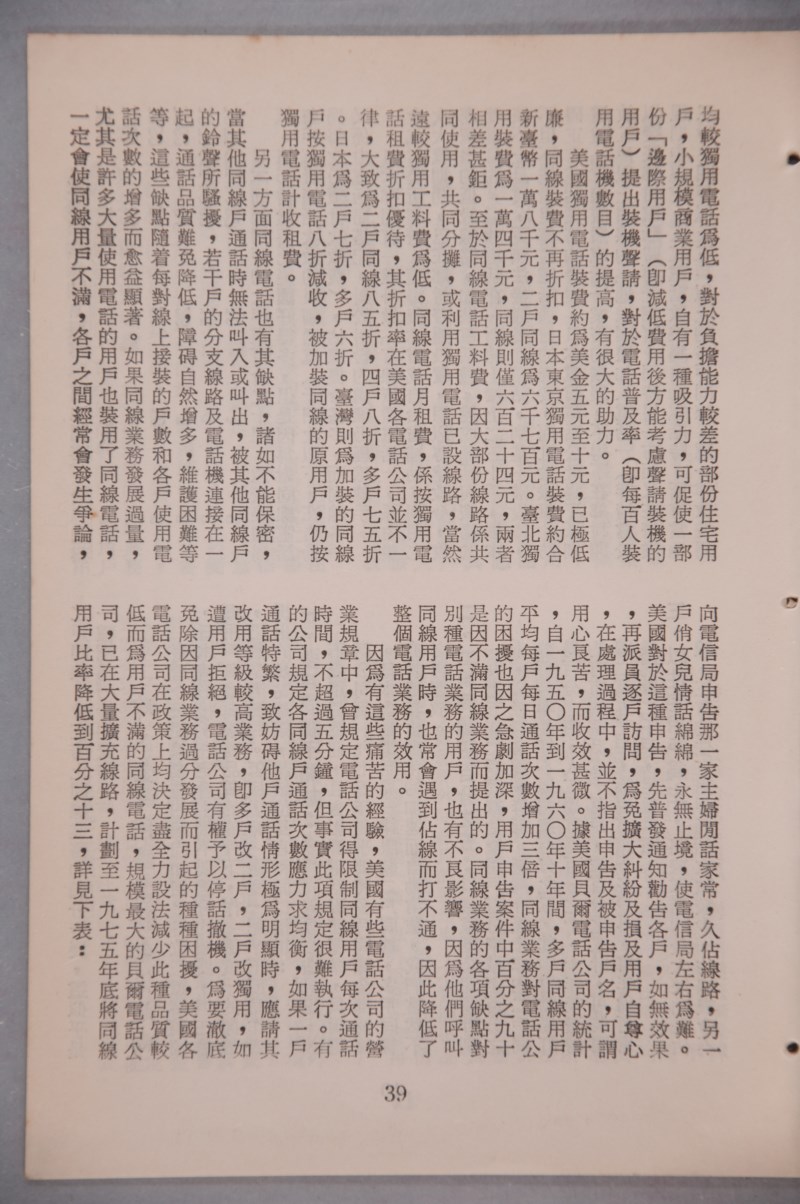 均較獨用電話爲低，對於負擔能力較差的部份住宅用
戶，小規模商業用戶，自有一種吸引力，可促使一部
份「邊際用戶」（卽減低費用後方能考慮聲請裝機的
用戶）提出裝機聲請，對於電話普及率（卽每百人裝
用電話機數目）的提高，有很大的助力。
美國獨用電話裝費約爲美金五元至十元，已極低
廉，同線裝費不再折扣，日本東京獨用電話裝費約合
新臺幣一萬八千元，二戶同線爲六千七百元。臺北獨
用裝費爲一萬四千元，同線則僅六百二十四元，兩者
相差甚鉅。至於同線電話工料費，因大部份線路係共
同使用，共同分攤，或利用獨用電話已設線路，當然
遠較獨用工料費爲低。同線電話月租費，係按獨用電
話租費折扣優待，其折扣率在美國各電話公司並不一
律，大致爲二戶同線八五折，四戶八折，多戶七五折
。日本爲二戶七折，多戶六折。臺灣則爲加裝的同線
戶按獨用電話八折減收，被加裝同線的原用戶，仍按
獨用電話計收租費。
另一方面同線電話也有其缺點，諸如不能保密，
當其他同線戶通話時無法叫入或叫出，被其他同線戶
的鈴聲所騷擾，若干戶的分支線路及電話機連接在一
起，通話品質難免降低，障碍自然增多，維護困難等
等，這些缺點隨着每對線上接裝的戶數和各戶使用電
話次數的增多而愈益顯著。如果同線業務發展過量，
尤其是許多大量使用電話的用戶也裝用了同線電話，
一定會使同線用戶不滿，各戶之間經常會發生爭論，
向電信局申告那一家主婦閒話家常，久佔線路，另一
戶俏女兒情話綿綿，永無止境，使電信局左右爲難。
美國對於這種申告，先普發通知勸告各戶，如無效果
，再派員逐戶訪問，爲免擴大糾紛及損及用戶自尊心
，在處理過程中，並不指出申告及被申告戶名，可謂
用心良苦，而收效甚微。據美國貝爾電話公司的統計
，自一九五〇年到一九六〇年十年間，多戶同線用戶
平均每戶每日通話次數增加三倍，同線業務對電話公
的困擾也因之急劇加深，用戶申告案件中百分之九十
是因不滿同線業務而提出的。同線業務的各項缺點對
別種電話業務的用戶，也有不良影響，因爲他們呼叫
同線用戶時，也常會遇到佔線而打不通，因此降低了
整個電話業務的效用。
因爲有這些痛苦的經驗，美國有些電話公司的營
業規章中，曾規定電話公司得限制同線用戶每次通話
時間，不超過五分鐘，但事實此項規定很難執行。有
的公司規定各同線戶通話次數應力求均衡，如果一戶
通話特繁，致妨碍他戶通話情形極爲明顯時，應請其
改用等級較高業務，卽多戶改二戶，二戶改獨用，如
遭用戶拒絕，電話公司有權予以停話撤機。爲要澈底
免除因同線業務過分發展而引起的種種困擾，美國各
電話公司在政策上均決定盡全力設法減少此種品質較
低而爲用戶不滿的同線電話，規模最大的貝爾電話公
司，已在大量擴充線路，計劃至一九七五年底將同線
用戶比率降低到百分之十三，詳見下表：
39